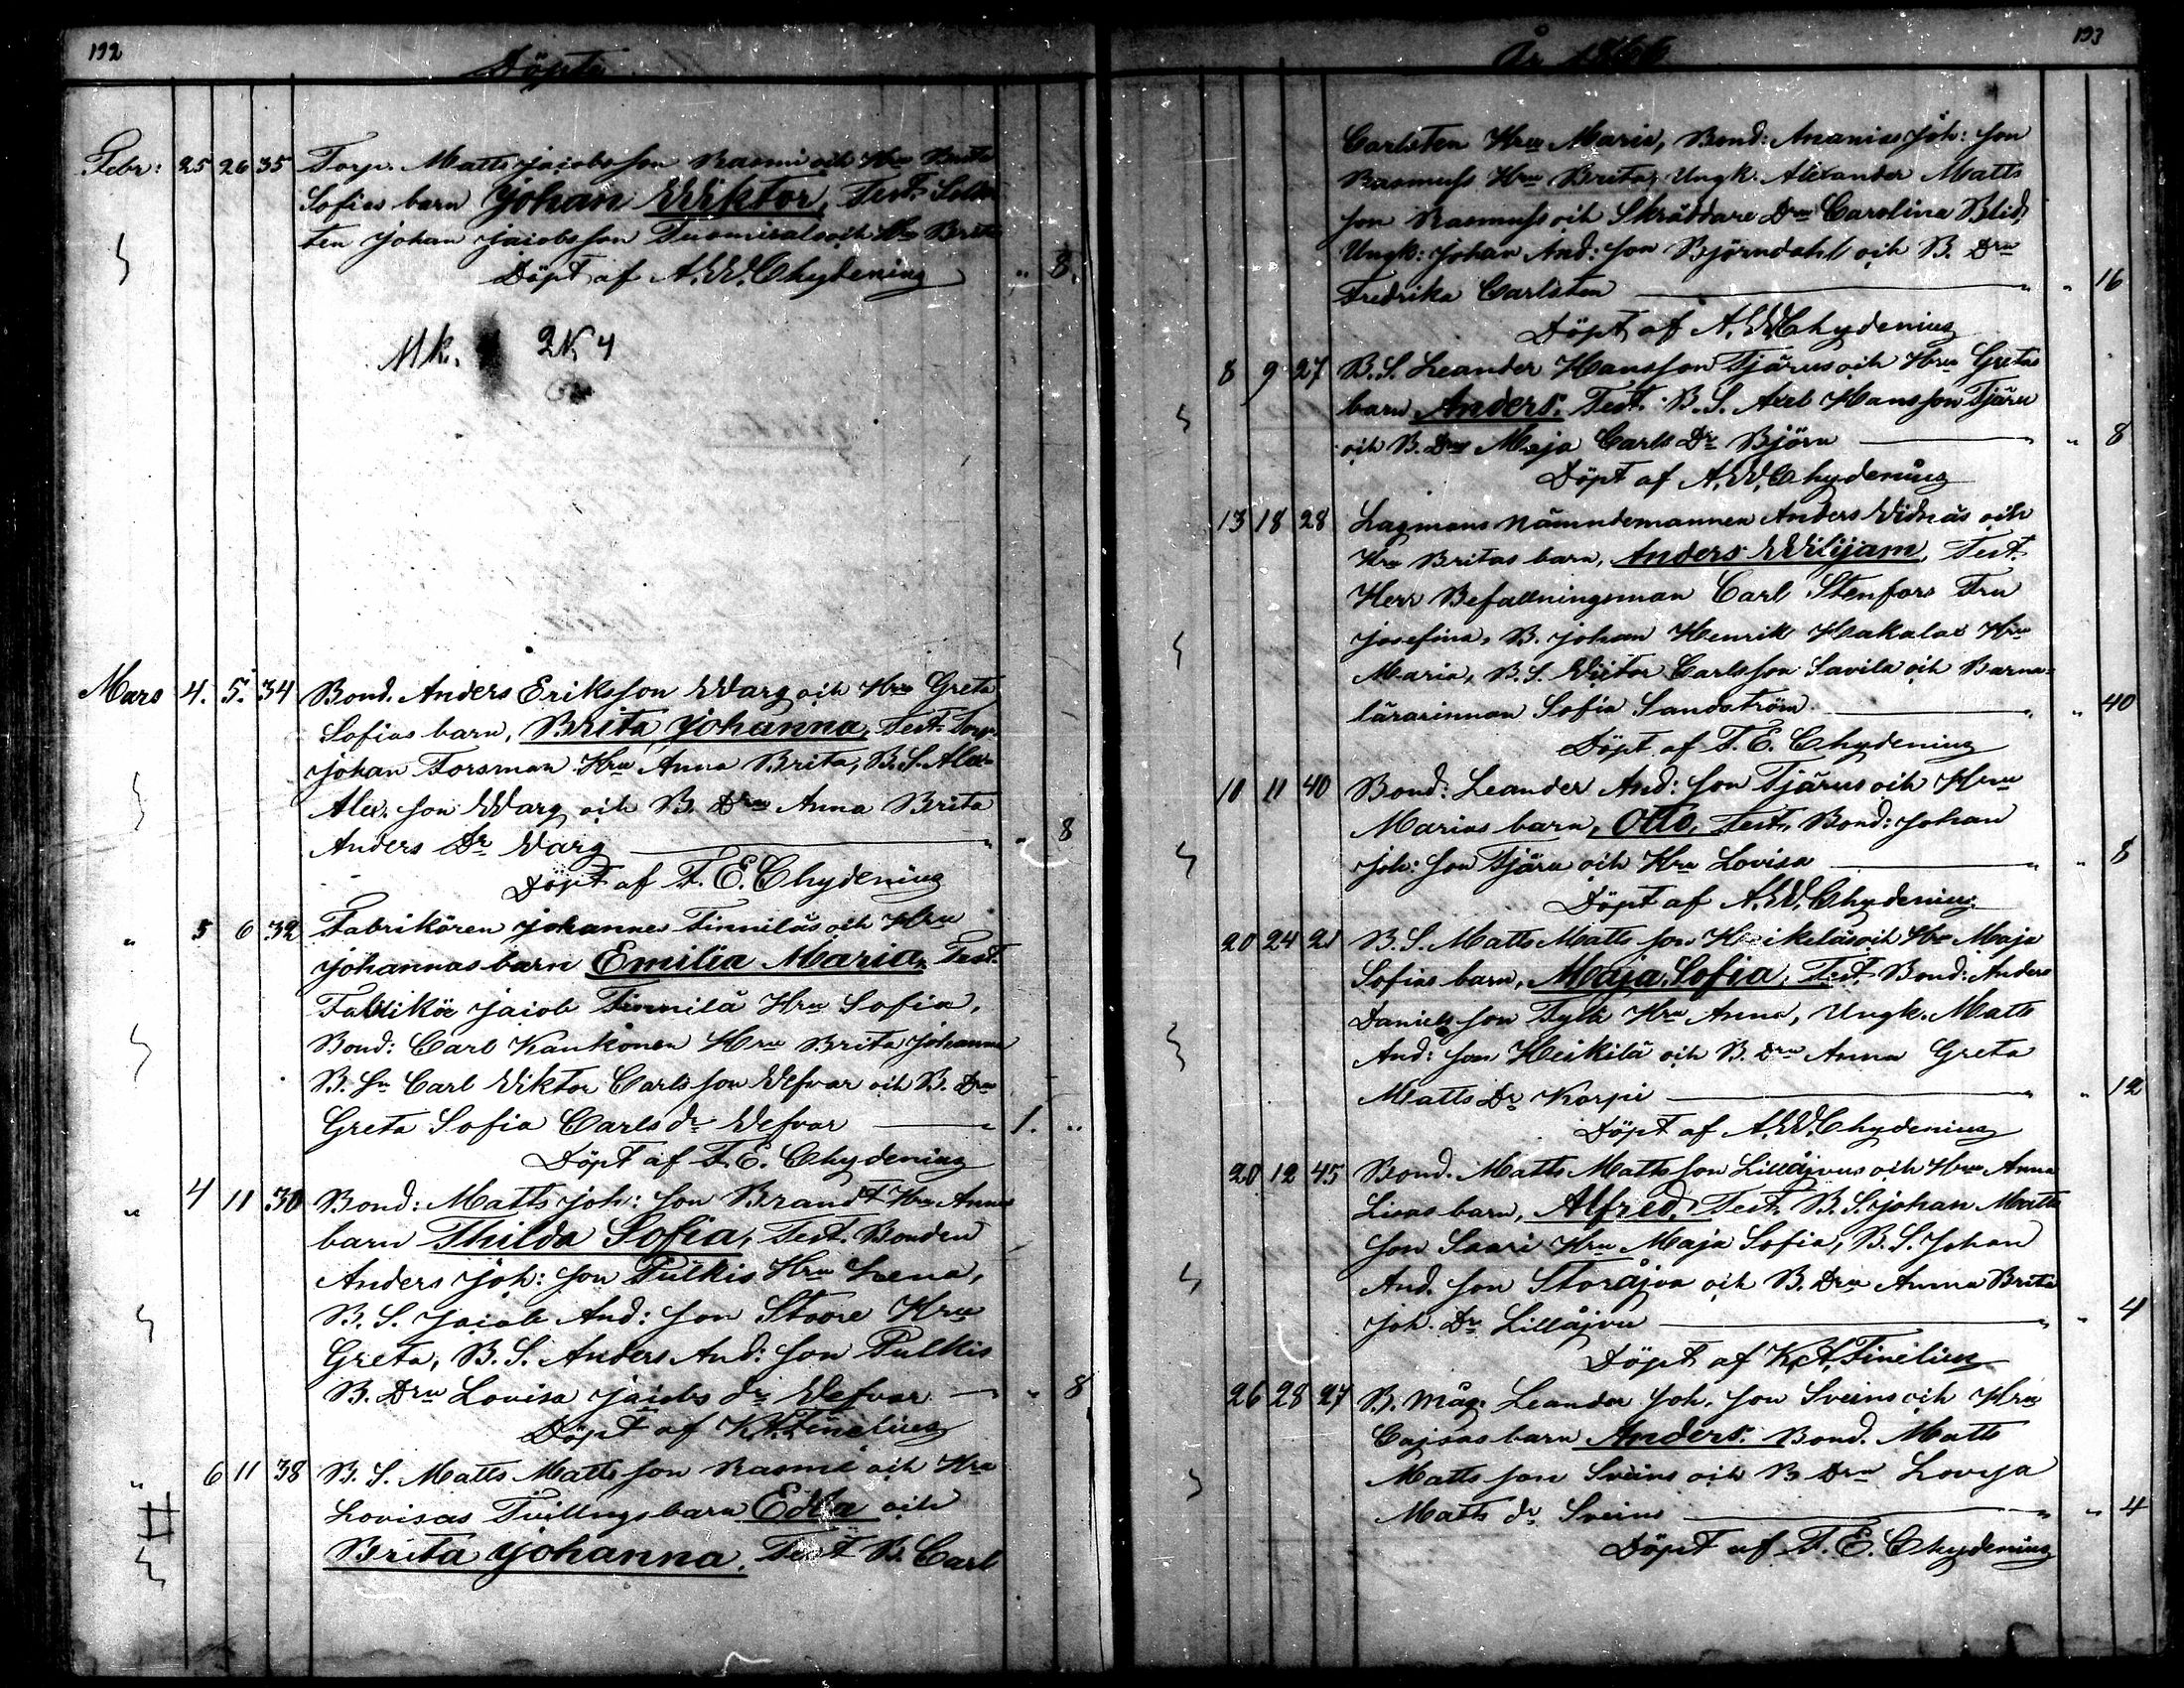 192
Döpte
Febr: 25 26 35 Torp. Matts Jacobsson Raomi och Hru Brita
Sofias barn Johan Wiktor, Test.
ten Johan Jacobsson och Hru Brita
Döpt af A.W. Chydenius " 8.
Mk. 2N 4
Mars 4. 5. 34 Bond. Anders Eriksson Warg och Hru Greta
Sofias barn, Brita Johanna, Test. Torp.
Johan Forsman Hru Anna Brita, B.S. Alex
Alex. son Warg och B. Dru Anna Brita
Anders Dr Warg " " 8
Döpt af F.E. Chydenius
" 5 6 32 Fabrikören Johannes Finnilas och Hru
Johannas barn Emilia Maria, Test.
Fabrikör Jacob Finnilä Hru Sofia,
Bond: Carl Kankonen Hru Brita Johanna
B. Sn Carl Viktor Carlsson Wefvar och B. Dru
Greta Sofia Carlsdr Wefvar " 1. "
Döpt af F.E. Chydenius
" 4 11 30 Bond: Matts Joh: son Brandt Hru Annas
barn Thilda Sofia, Test. Bonden
Anders Joh: son Pulkis Hru Lena,
B.S. Jacob And: son Stoore Hru
Greta, B.S. Anders And: son Pulkis
B. Dru Lovisa Jacobs dr Wefvar " 8
Döpt af K.A. Finelius
" 6 11 38 B.S. Matts Matts son Raomi och Hru
# Lovisas Tvillingsbarn Edla och
Brita Johanna, Test B. Carl
193
År 1866
Carlsten Hru Maria, Bond: Ananias Joh: son
Rasmuss Hru Brita, Ungk. Alexander Matts
son Rasmuss och Skräddare Dru Carolina Blid,
Ungk: Johan And: son Björndahl och B. Dru
Fredrika Carlsten " " 16
Döpt af A.W. Chydenius
8 9 27 B.S. Leander Hansson Tjärus och Hru Gretas
barn Anders. Test. B.S. Axel Hansson Tjäru
och B. Dru Maja Carls Dr Björn " " 8
Döpt af A.W. Chydenius
13 18 28 Lagmans nämndemannen Anders Vidnäs och
Hru Britas barn, Anders Wilijam, Test.
Herr Befallningsman Carl Stenfors Fru
Josefina, B. Johan Henrik Hakalax Hru
Maria, B.S. Victor Carlsson Savila och Barna=
lärarinnan Sofia Sandström " " 40
Döpt af F.E. Chydenius
11 40 Bond: Leander And: son Tjärus och Hru
Marias barn, Otto, Test. Bond: Johan
Joh: son Tjäru och Hru Lovisa " " 8
Döpt af A.W. Chydenius
20 24 21 B.S. Matts Matts son Heikeläs och Hru Maja
Sofias barn, Maja Sofia, Test. Bond: Anders
Daniels son Hru Anna, Ungk. Matts
And: son Heikilä och B. Dru Anna Greta
Matts Dr Korpi " " 12
Döpt af A.W. Chydenius
20 12 45 Bond. Matts Matts son Lillåjvus och Hru Anna
Lisas barn, Alfred, Test. B.S. Johan Matts
son Saari Hru Maja Sofia, B.S. Johan
And. son Storåjva och B. Dru Anna Brita
Joh. Dr Lillåjva " " 4
Döpt af K.A. Finelius
26 28 27 B. Måg. Leander Joh. son Sveins och Hru
Cajsas barn Anders. Bond. Matts
Matts son Sveins och B Dru Lovisa
Matts dr Sveins " " 4
Döpt af F.E. Chydenius